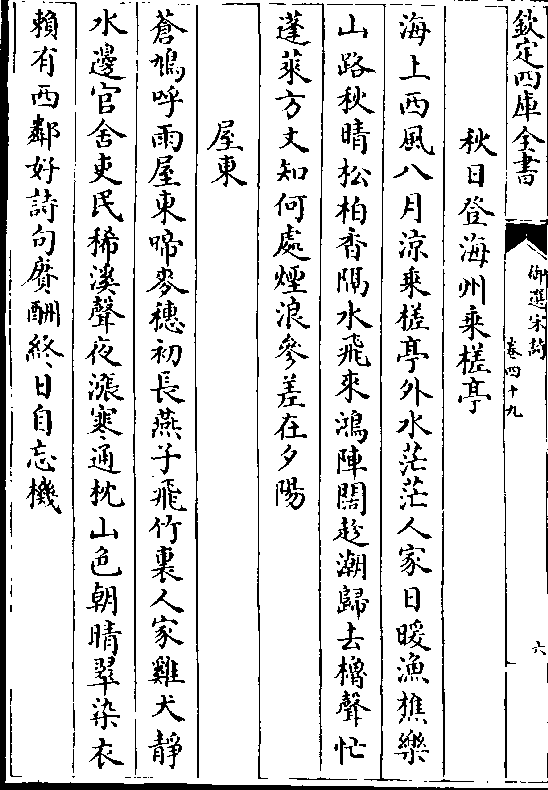 欽定四庫全書
御選宋詩
卷四十九
六
秋日登海州乘槎亭
海上西風八月涼乘槎亭外水茫茫人家日暖漁樵樂
山路秋晴松柏香隔水飛來鴻陣闊趁潮歸去櫓聲忙
蓬萊方丈知何處煙浪參差在夕陽
屋東
蒼鳩呼雨屋東啼麥穗初長燕子飛竹裏人家雞犬靜
水邊官舍吏民稀溪聲夜漲寒通枕山色朝晴翠染衣
賴有西鄰好詩句賡酬終日自忘機